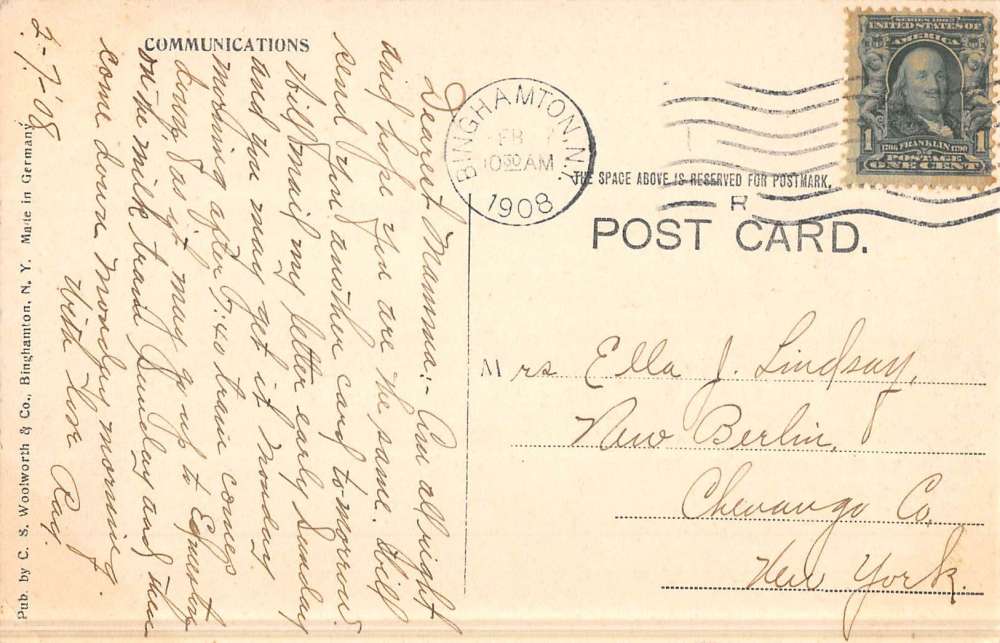 COMMUNICATIONS
2-7-'08
Dearest Mamma:- Am all right
and hope you are the same. Will
send you another card to-morrow.
Will mail my letter early Sunday
and you may get it Monday
morning after 9.40 train comes
down & as it may go up to
on the milk train Sunday and then
come down Monday morning.
With love Ray.
Pub. by C. S. Woolworth & Co., Binghamton, N. Y. Made in Germany
BINGHAMTON, N.Y.
FEB 7
10 30 AM
1908
SERIES 1902
UNITED STATES OF
AMERICA
1 1
1706 FRANKLIN 1790
POSTAGE
ONE CENT
THE SPACE ABOVE IS RESERVED FOR POSTMARK.
R
POST CARD.
Mrs Ella J. Lindsay,
New Berlin,
Chenango Co,
New York.